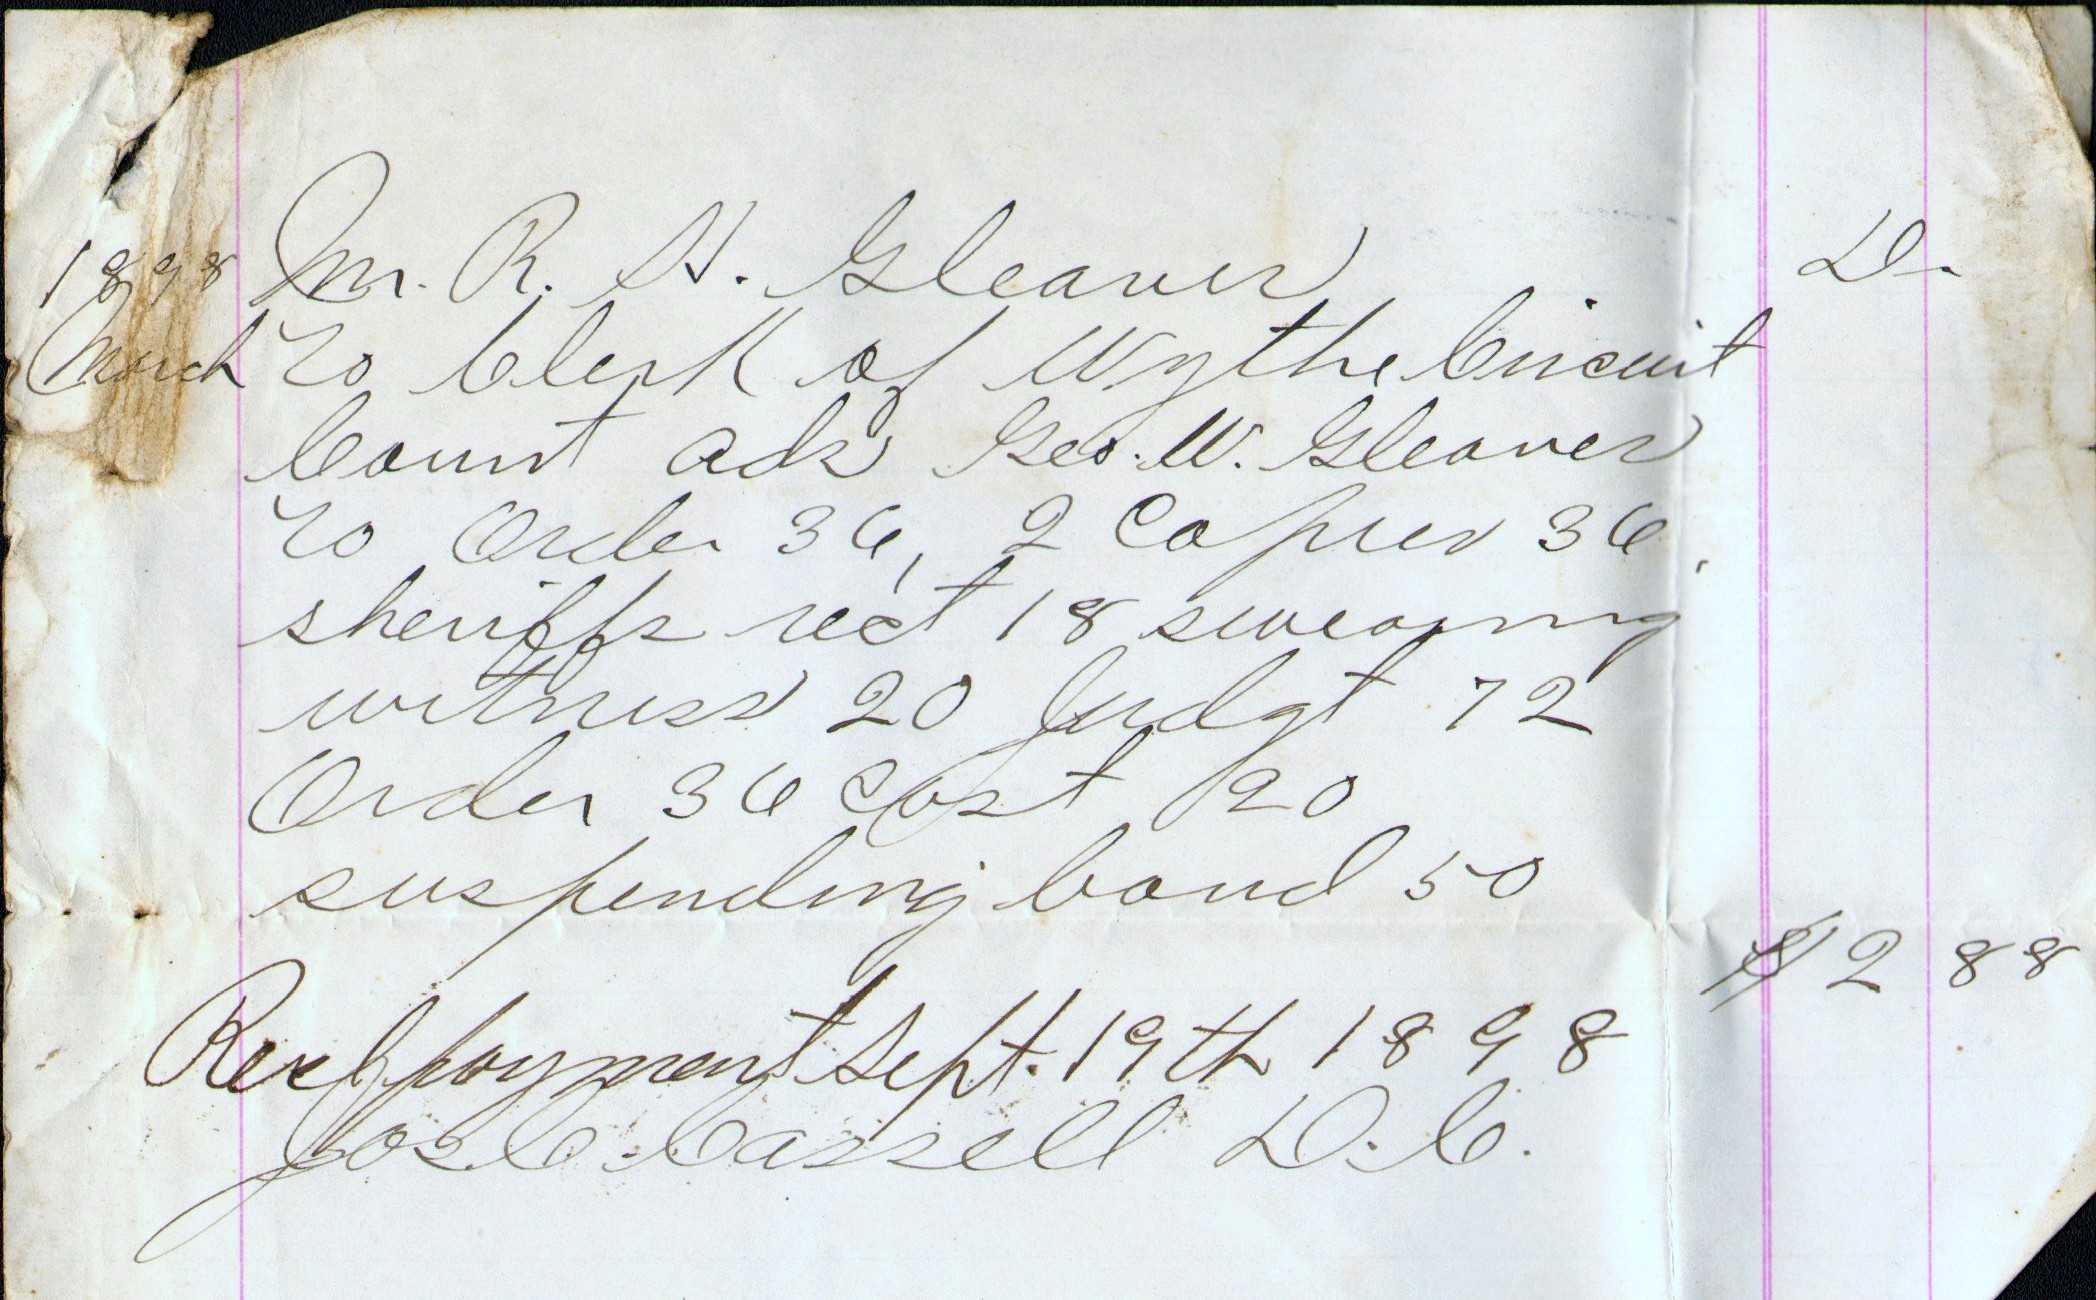 1898 Mr. R. H. Gleaves Dr.
March To Clerk of Wythe Circuit
Court ads Geo. W. Gleaves
To Order 36, 2 Copies 36,
sheriffs rec't 18 swearing
witness 20 Judgt 72
Order 36 Cost 20
suspending bond 50
$2 88
Recd payment Sept. 19th 1898
Jos. C. Cassell D. C.